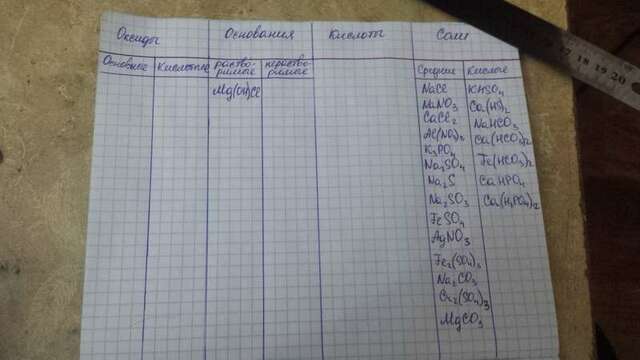 Оксиды Основания Кислоты Соли
Основные Кислотные раство-римые нераство-римые Средние Кислые
Mg(OH)Cl
NaCl KHSO4
NaNO3 Ca(HS)2
CaCl2 NaHCO3
Al(NO3)3 Ca(HCO3)2
K3PO4 Fe(HCO3)2
Na2SO4 CaHPO4
Na2S Ca(H2PO4)2
Na2SO3
FeSO4
AgNO3
Fe2(SO4)3
Na2CO3
Cr2(SO4)3
MgCO3
17 18 19 20